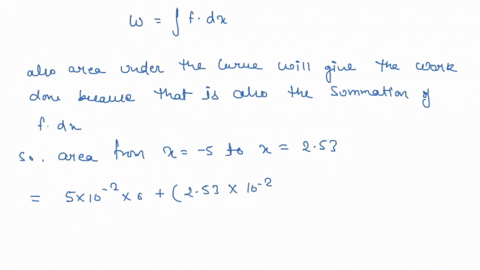 W = ∫ f. dx
also area under the curve will give the work
done because that is also the summation of
f. dx
so. area from x = -5 to x = 2.53
= 5×10⁻² × 6 + (2.53 × 10⁻²